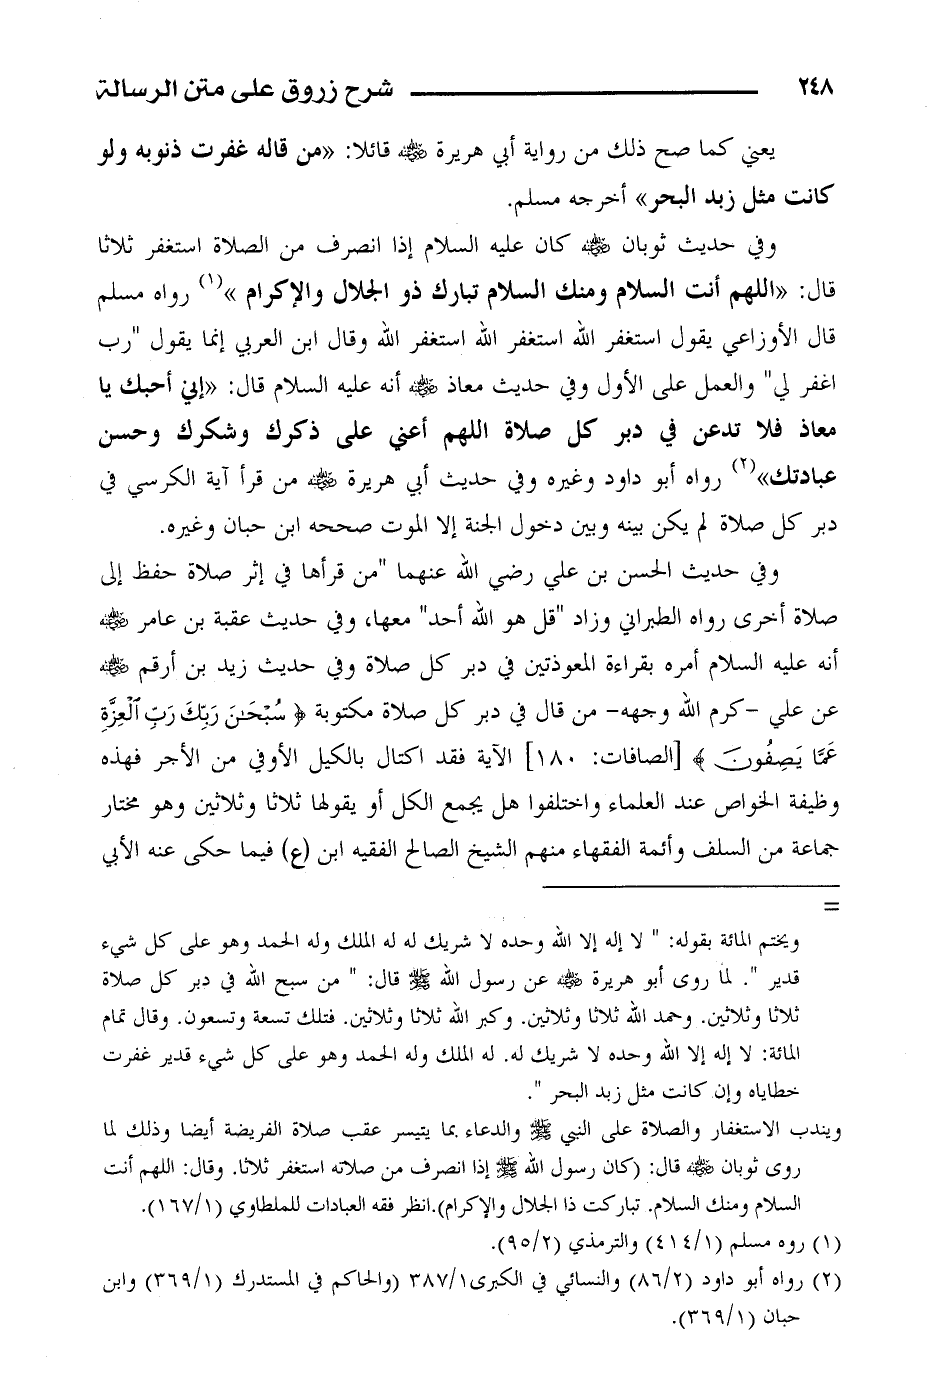 ٢٤٨ شرح زروق على متن الرسالة
يعني كما صح ذلك من رواية أبي هريرة ﵁ قائلا: «من قاله غفرت ذنوبه ولو
كانت مثل زبد البحر» أخرجه مسلم.
وفي حديث ثوبان ﵁ كان عليه السلام إذا انصرف من الصلاة استغفر ثلاثا
قال: «اللهم أنت السلام ومنك السلام تبارك ذو الجلال والإكرام »(١) رواه مسلم
قال الأوزاعي يقول استغفر الله استغفر الله استغفر الله وقال ابن العربي إنما يقول "رب
اغفر لي" والعمل على الأول وفي حديث معاذ ﵁ أنه عليه السلام قال: «إني أحبك يا
معاذ فلا تدعن في دبر كل صلاة اللهم أعني على ذكرك وشكرك وحسن
عبادتك»(٢) رواه أبو داود وغيره وفي حديث أبي هريرة ﵁ من قرأ آية الكرسي في
دبر كل صلاة لم يكن بينه وبين دخول الجنة إلا الموت صححه ابن حبان وغيره.
وفي حديث الحسن بن علي رضي الله عنهما "من قرأها في إثر صلاة حفظ إلى
صلاة أخرى رواه الطبراني وزاد "قل هو الله أحد" معها، وفي حديث عقبة بن عامر ﵁
أنه عليه السلام أمره بقراءة المعوذتين في دبر كل صلاة وفي حديث زيد بن أرقم ﵁
عن علي -كرم الله وجهه- من قال في دبر كل صلاة مكتوبة ﴿ سُبْحَٰنَ رَبِّكَ رَبِّ ٱلْعِزَّةِ
عَمَّا يَصِفُونَ ﴾ [الصافات: ١٨٠] الآية فقد اكتال بالكيل الأوفي من الأجر فهذه
وظيفة الخواص عند العلماء واختلفوا هل يجمع الكل أو يقولها ثلاثا وثلاثين وهو مختار
جماعة من السلف وأئمة الفقهاء منهم الشيخ الصالح الفقيه ابن (ع) فيما حكى عنه الأبي
=
ويختم المائة بقوله: " لا إله إلا الله وحده لا شريك له له الملك وله الحمد وهو على كل شيء
قدير ". لما روى أبو هريرة ﵁ عن رسول الله ﷺ قال: " من سبح الله في دبر كل صلاة
ثلاثا وثلاثين. وحمد الله ثلاثا وثلاثين. وكبر الله ثلاثا وثلاثين. فتلك تسعة وتسعون. وقال تمام
المائة: لا إله إلا الله وحده لا شريك له. له الملك وله الحمد وهو على كل شيء قدير غفرت
خطاياه وإن كانت مثل زبد البحر ".
ويندب الاستغفار والصلاة على النبي ﷺ والدعاء بما يتيسر عقب صلاة الفريضة أيضا وذلك لما
روى ثوبان ﵁ قال: (كان رسول الله ﷺ إذا انصرف من صلاته استغفر ثلاثا. وقال: اللهم أنت
السلام ومنك السلام. تباركت ذا الجلال والإكرام).انظر فقه العبادات للملطاوي (١٦٧/١).
(١) روه مسلم (٤١٤/١) والترمذي (٩٥/٢).
(٢) رواه أبو داود (٨٦/٢) والنسائي في الكبرى٣٨٧/١ (والحاكم في المستدرك (٣٦٩/١) وابن
حبان (٣٦٩/١).